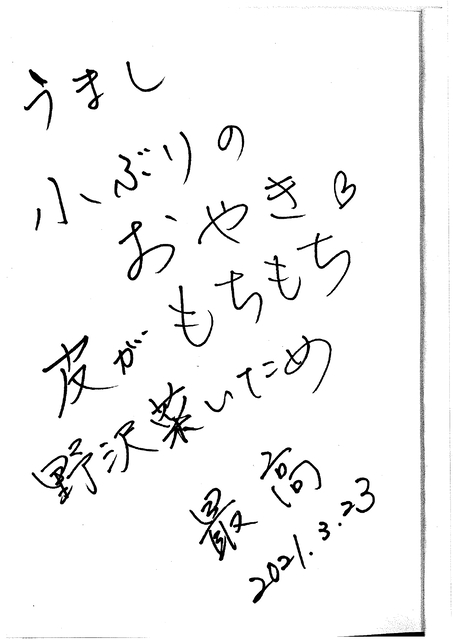 うまし
小ぶりの
おやき♡
皮がもちもち
野沢菜いため
最高
2021.3.23